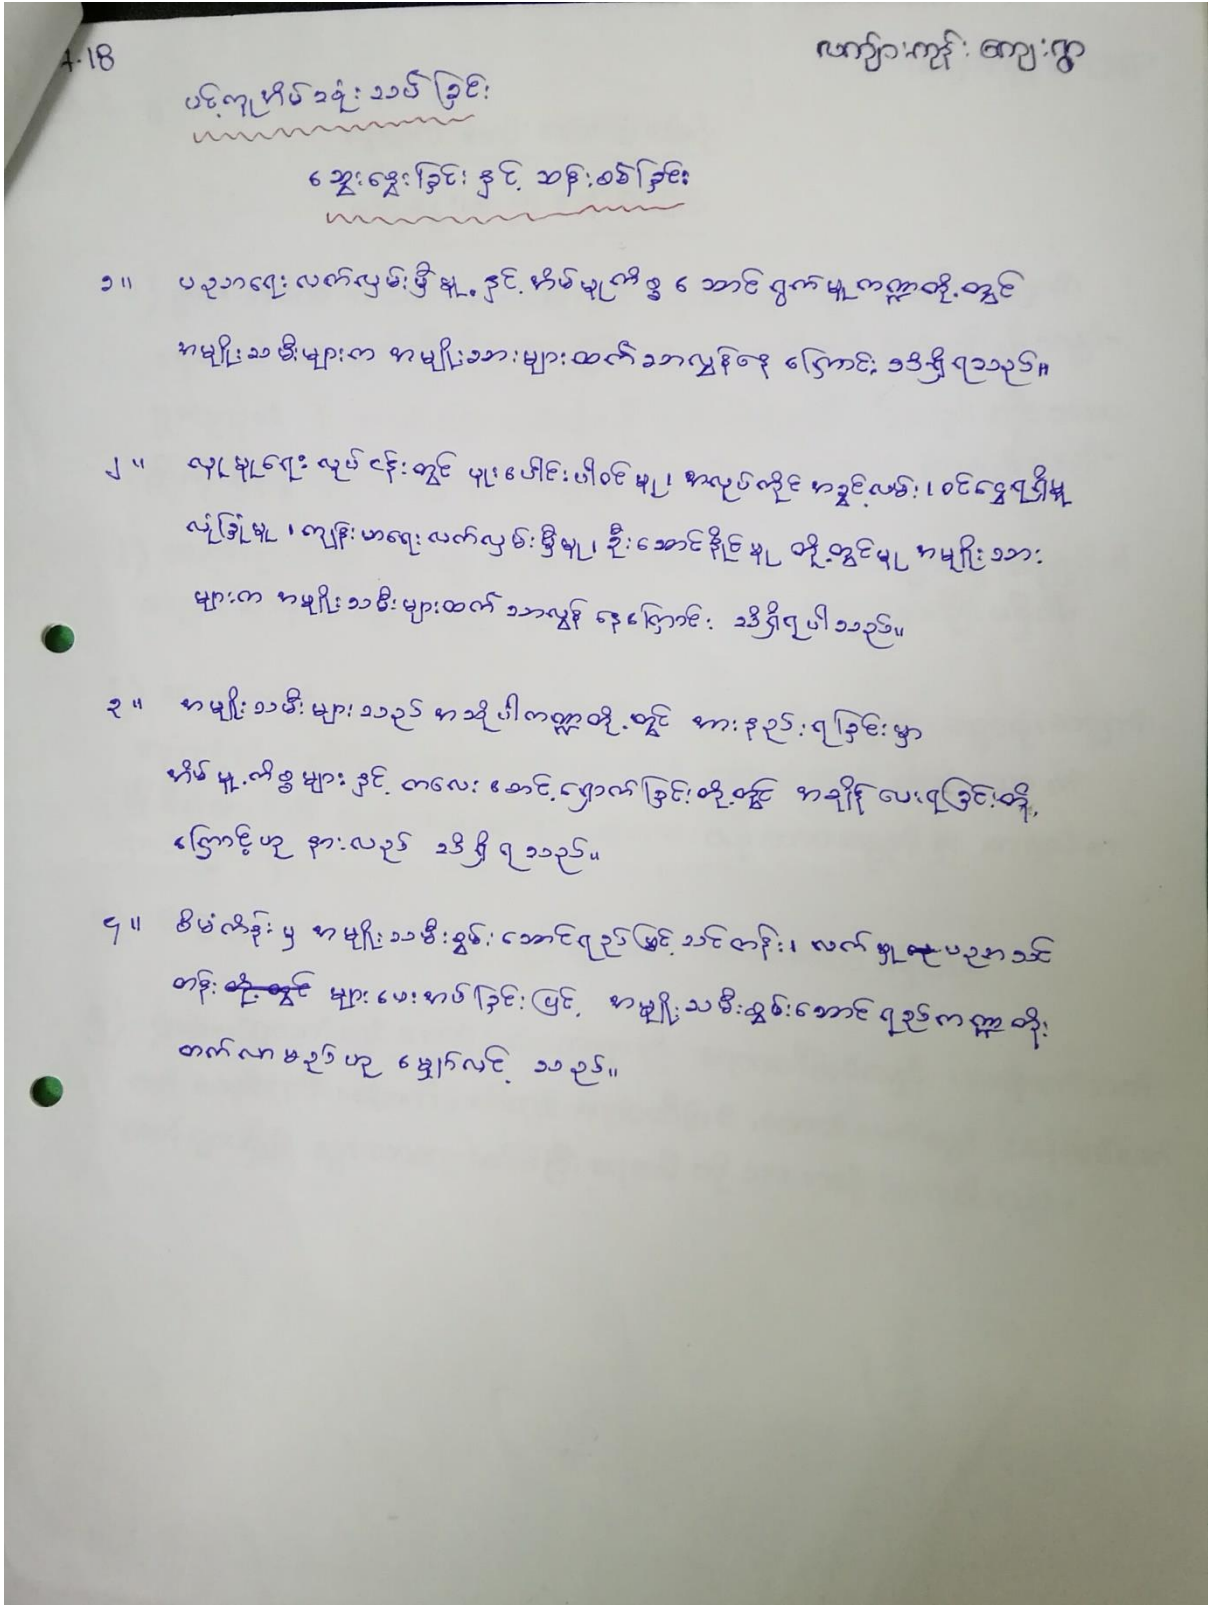 4.18
လကျ်ားကုန်း ကျေးရွာ
ပင့်ကူအိမ်သုံးသပ်ခြင်း
ဆွေးနွေးခြင်း နှင့် ဆန်းစစ်ခြင်း
၁။ ပညာရေးလက်လှမ်းမှီမှု နှင့် အိမ်မှုကိစ္စ ဆောင်ရွက်မှု ကဏ္ဍတို့တွင်
အမျိုးသမီးများက အမျိုးသားများထက် သာလွန်နေ ကြောင်း သိရှိရသည်။
၂။ လူမှုရေး လုပ်ငန်းတွင် ပူးပေါင်းပါဝင်မှု၊ အလုပ်ကိုင် အခွင့်လမ်း၊ ဝင်ငွေရရှိမှု
လုံခြုံမှု ၊ ကျန်းမာရေးလက်လှမ်းမှီမှု၊ ဦးဆောင်နိုင်မှု တို့တွင်မူ အမျိုးသား
များက အမျိုးသမီးများထက် သာလွန် နေကြောင်း သိရှိရပါသည်။
၃။ အမျိုးသမီးများသည် အဆိုပါကဏ္ဍတို့တွင် အားနည်းရခြင်းမှာ
အိမ်မှုကိစ္စများ နှင့် ကလေး စောင့်ရှောက်ခြင်းတို့တွင် အချိန် ပေးရခြင်းတို့
ကြောင့်ဟု နားလည် သိရှိရသည်။
၄။ စီမံကိန်းမှ အမျိုးသမီးစွမ်းဆောင်ရည်မြှင့်သင်တန်း၊ လက်မှုပညာသင်
တန်း များပေးအပ်ခြင်းဖြင့် အမျိုးသမီးစွမ်းဆောင်ရည်ကဏ္ဍတိုး
တက်လာမည်ဟု မျှော်လင့် သည်။